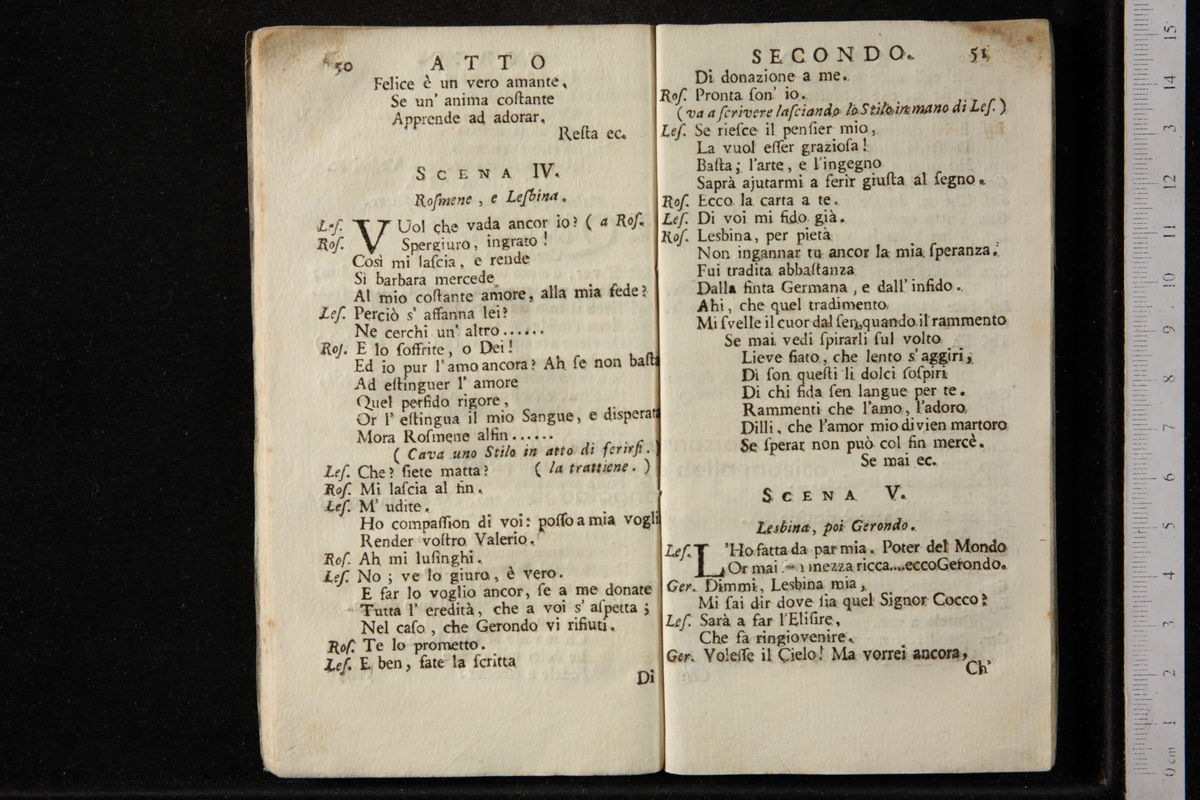 50 ATTO
Felice è un vero amante,
Se un' anima coſtante
Apprende ad adorar.
Reſta ec.
SCENA IV.
Roſmene, e Lesbina.
Leſ. VUol che vada ancor io? ( a Roſ.
Roſ. Spergiuro, ingrato!
Così mi laſcia, e rende
Sì barbara mercede
Al mio coſtante amore, alla mia fede?
Leſ. Perciò s' affanna lei?
Ne cerchi un' altro......
Roſ. E lo ſoffrite, o Dei!
Ed io pur l'amo ancora? Ah ſe non baſta
Ad eſtinguer l' amore
Quel perfido rigore,
Or l' eſtingua il mio Sangue, e diſperata
Mora Roſmene alfin......
( Cava uno Stilo in atto di ferirſi. )
Leſ. Che? ſiete matta? ( la trattiene. )
Roſ. Mi laſcia al fin.
Leſ. M' udite.
Ho compaſſion di voi: poſſo a mia vogli
Render voſtro Valerio.
Roſ. Ah mi luſinghi.
Leſ. No; ve lo giuro, è vero.
E far lo voglio ancor, ſe a me donate
Tutta l' eredità, che a voi s' aſpetta;
Nel caſo, che Gerondo vi rifiuti.
Roſ. Te lo prometto.
Leſ. E ben, fate la ſcritta
Di
SECONDO. 51
Di donazione a me.
Roſ. Pronta ſon' io.
( va a ſcrivere laſciando lo Stilo in mano di Leſ. )
Leſ. Se rieſce il penſier mio,
La vuol eſſer grazioſa!
Baſta; l'arte, e l'ingegno
Saprà ajutarmi a ferir giuſta al ſegno.
Roſ. Ecco la carta a te.
Leſ. Di voi mi fido già.
Roſ. Lesbina, per pietà
Non ingannar tu ancor la mia ſperanza.
Fui tradita abbaſtanza
Dalla finta Germana, e dall' infido.
Ahi, che quel tradimento
Mi ſvelle il cuor dal ſen, quando il rammento
Se mai vedi ſpirarli ſul volto
Lieve fiato, che lento s'aggiri,
Di ſon queſti li dolci ſoſpiri
Di chi fida ſen langue per te.
Rammenti che l'amo, l'adoro,
Dilli, che l'amor mio divien martoro
Se ſperar non può col fin mercè.
Se mai ec.
SCENA V.
Lesbina, poi Gerondo.
Leſ. L'Ho fatta da par mia. Poter del Mondo
Or mai mezza ricca....ecco Gerondo.
Ger. Dimmi, Lesbina mia,
Mi ſai dir dove ſia quel Signor Cocco?
Leſ. Sarà a far l'Eliſire,
Che fà ringiovenire.
Ger. Voleſſe il Cielo! Ma vorrei ancora,
Ch'
15
14
13
12
11
10
9
8
7
6
5
4
3
2
1
0 cm